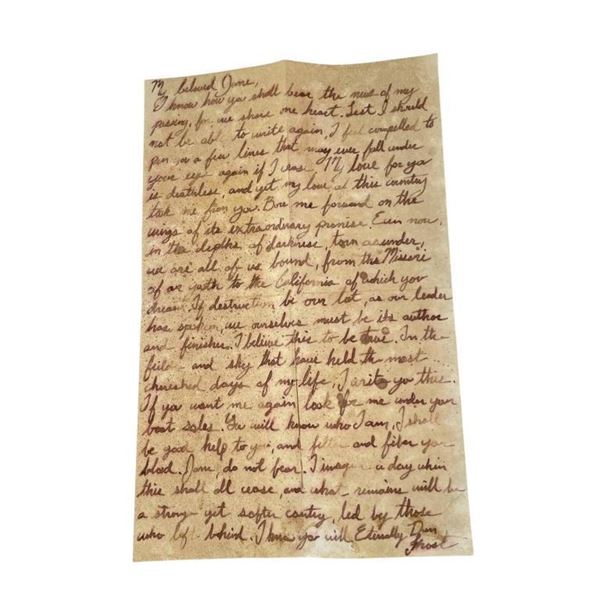 My beloved Jane,
I know how you shall bear the news of my
passing, for we share one heart. Lest I should
not be able to write again, I feel compelled to
pen you a few lines that may ever fall under
your eyes again if I cease. My love for you
is deathless, and yet my love of this country
took me from you. Bore me forward on the
wings of its extraordinary promise. Even now,
in the depths of darkness, torn asunder,
we are all of us bound, from the Missouri
of our youth to the California of which you
dream. If destruction be our lot, as our leader
has spoken, we ourselves must be its author
and finisher. I believe this to be true. In the
field and sky that have held the most
cherished days of my life, I write you this.
If you want me again look for me under your
boot soles. You will know who I am, I shall
be good help to you, and filter and fiber your
blood. Jane do not fear. I imagine a day when
this shall all cease, and what remains will be
a stronger yet softer country, led by those
who left behind. I know you will Eternally